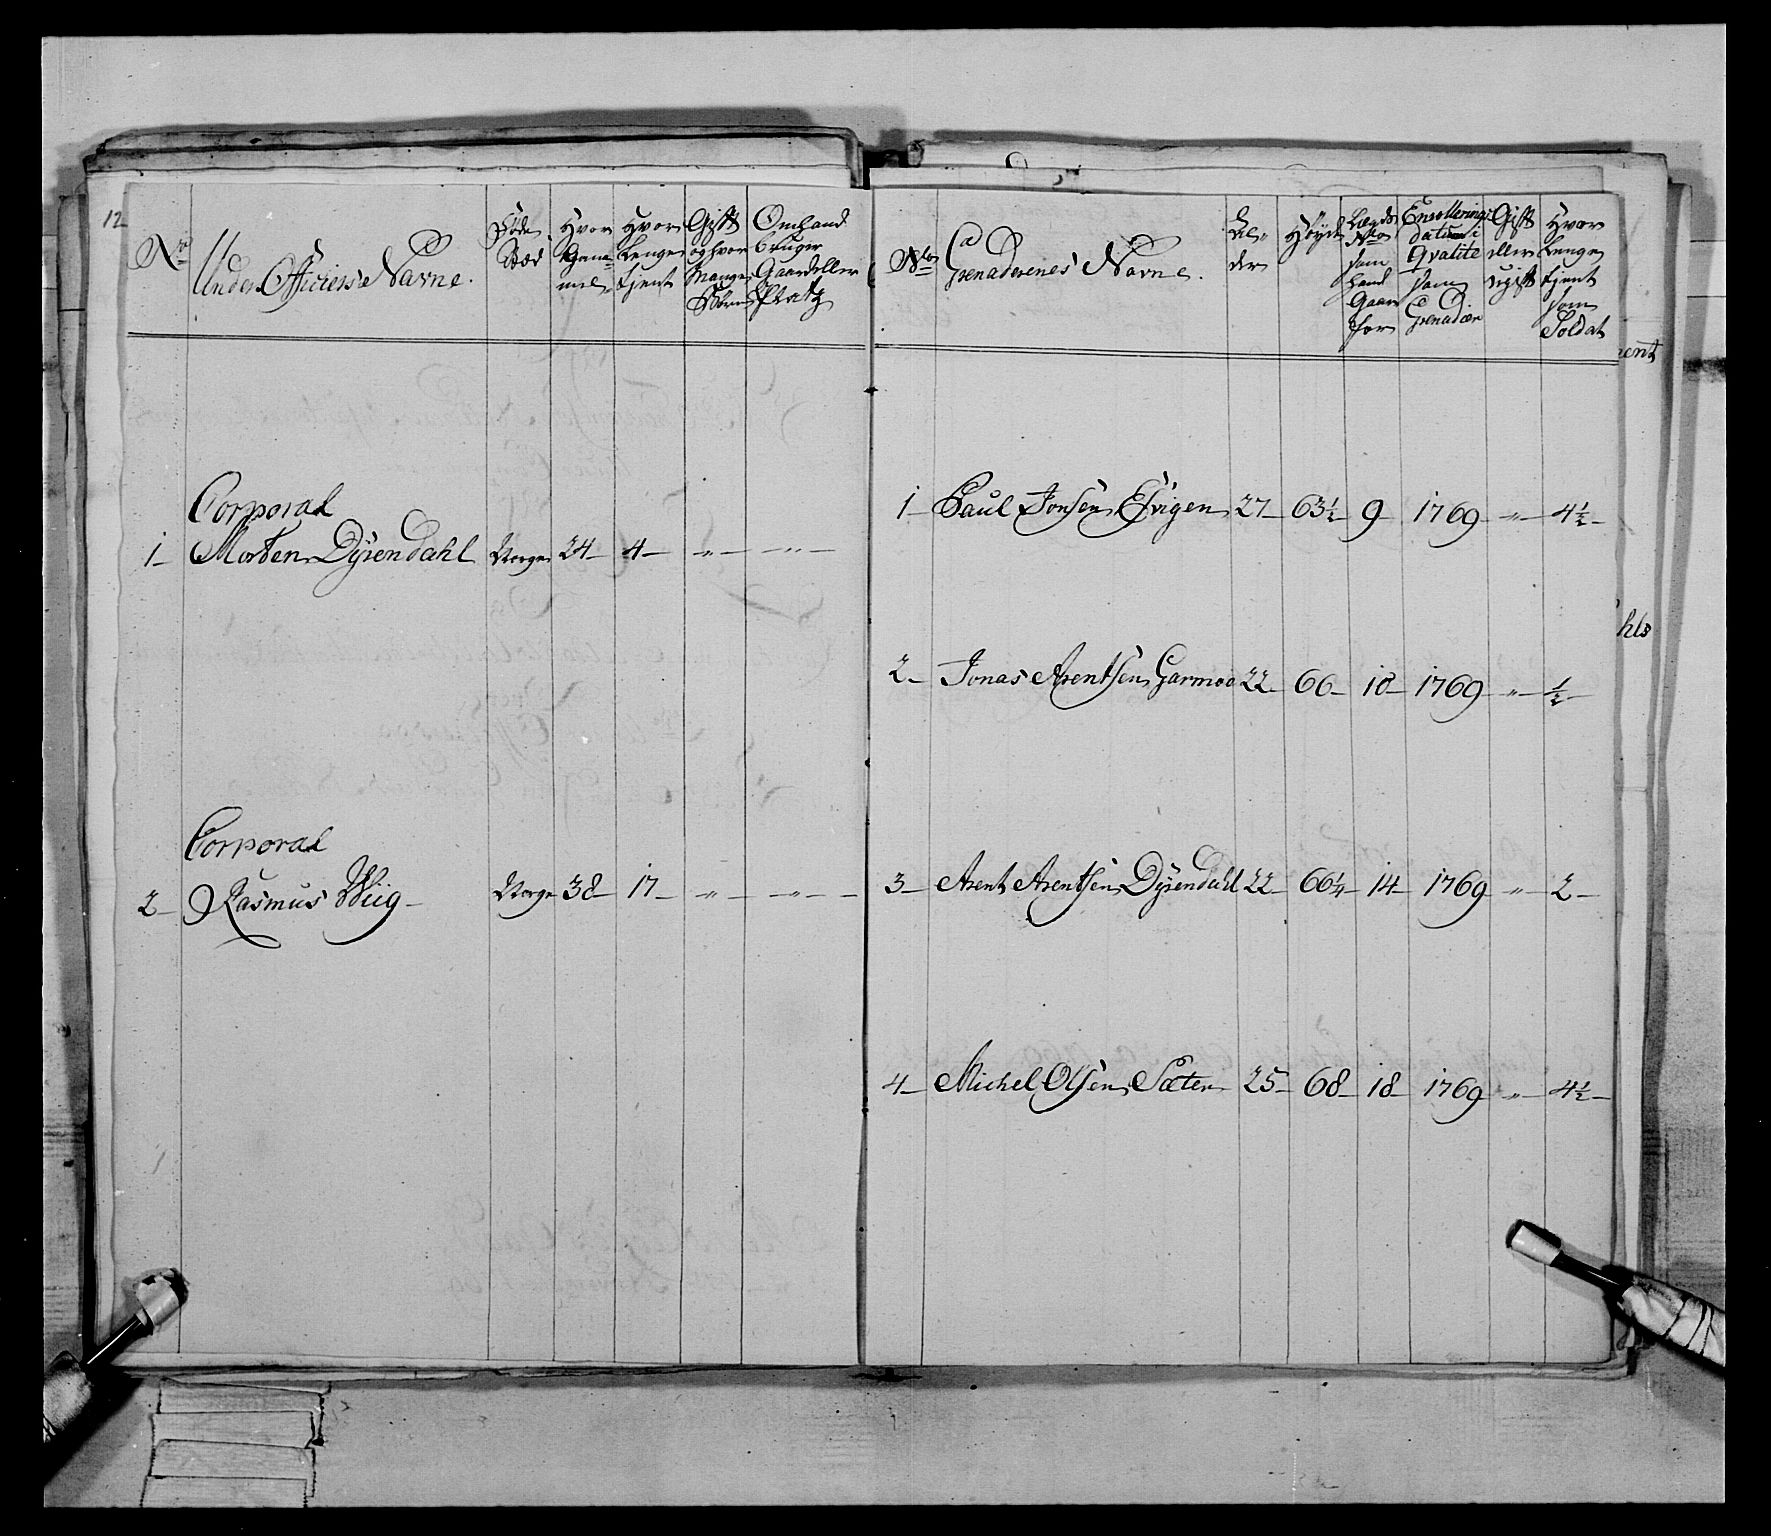 12
No Under Officiers Navne. Føde Stæd Hvor Gammel Hvor Lenge tjent Gift og hvor Mange Børn Om hand bruger Gaard eller Platz
Corporal
1 Morten Dyrendahl Norge 24 4 " "
Corporal
2 Rasmus Wiig Norge 38 17 " "
No Grenaderenes Navne. Alder Høyde Lægds No som hand Gaar for Enrollerings datum i Qvalite som Grenadeer Gift eller ugift Hvor Lenge tjent som Soldat
1 Paul Jonsen Esvigen 27 63½ 9 1769 " 4½
2 Jonas Arentsen Garmoe 22 66 10 1769 " ½
3 Arent Arentsen Dyrendahl 22 66¼ 14 1769 " 2
4 Michel Olsen Sæter 25 68 18 1769 " 4½
ent
hls